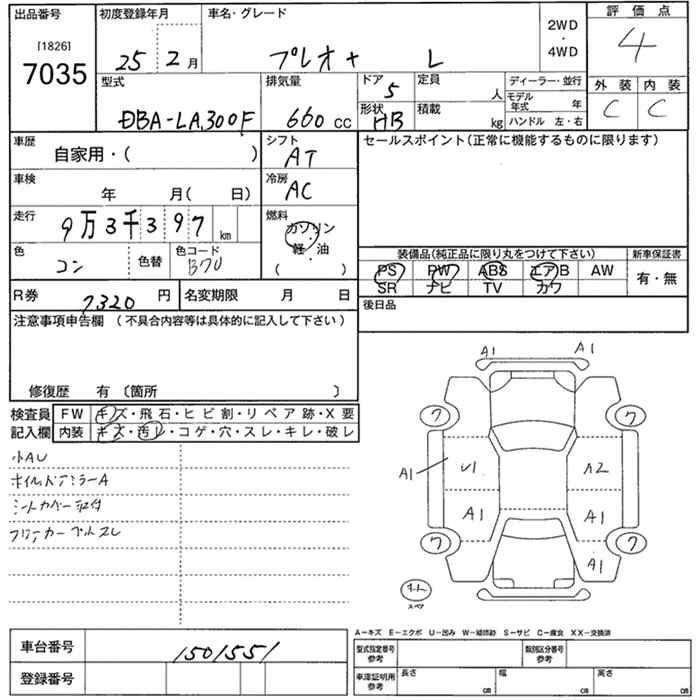 出品番号
[1826]
7035
初度登録年月
25年2月
車名・グレード
プレオ+ L
2WD
・
4WD
評価点
4
型式
DBA-LA300F
排気量
660 CC
ドア
5
形状
HB
定員
人
積載
kg
ディーラー・並行
モデル年式 年
ハンドル 左・右
外装 内装
C C
車歴
自家用・( )
シフト
AT
セールスポイント(正常に機能するものに限ります)
車検
年 月( 日)
冷房
AC
走行
9万3千397 km
燃料
ガソリン
・
軽・油
( )
色
コン
色替
色コード
B70
装備品(純正品に限り丸をつけて下さい)
PS PW ABS エアB AW
SR ナビ TV カワ
新車保証書
有・無
R券
7,320 円
名変期限 月 日
後日品
注意事項申告欄 (不具合内容等は具体的に記入して下さい)
修復歴 有 〔箇所 〕
検査員記入欄
FW キズ・飛石・ヒビ割・リペア跡・X要
内装 キズ・汚レ・コゲ・穴・スレ・キレ・破レ
小AU
シートカバー取付
A1 A1
ワ ワ
A1
U1 A2
A1 A1
ワ ワ
A1
スペア
A-キズ E-エクボ U-凹み W-補修跡 S-サビ C-腐食 XX-交換済
車台番号
1501551
登録番号
型式指定番号
参考
類別区分番号
参考
車庫証明用
参考
長さ cm
幅 cm
高さ cm